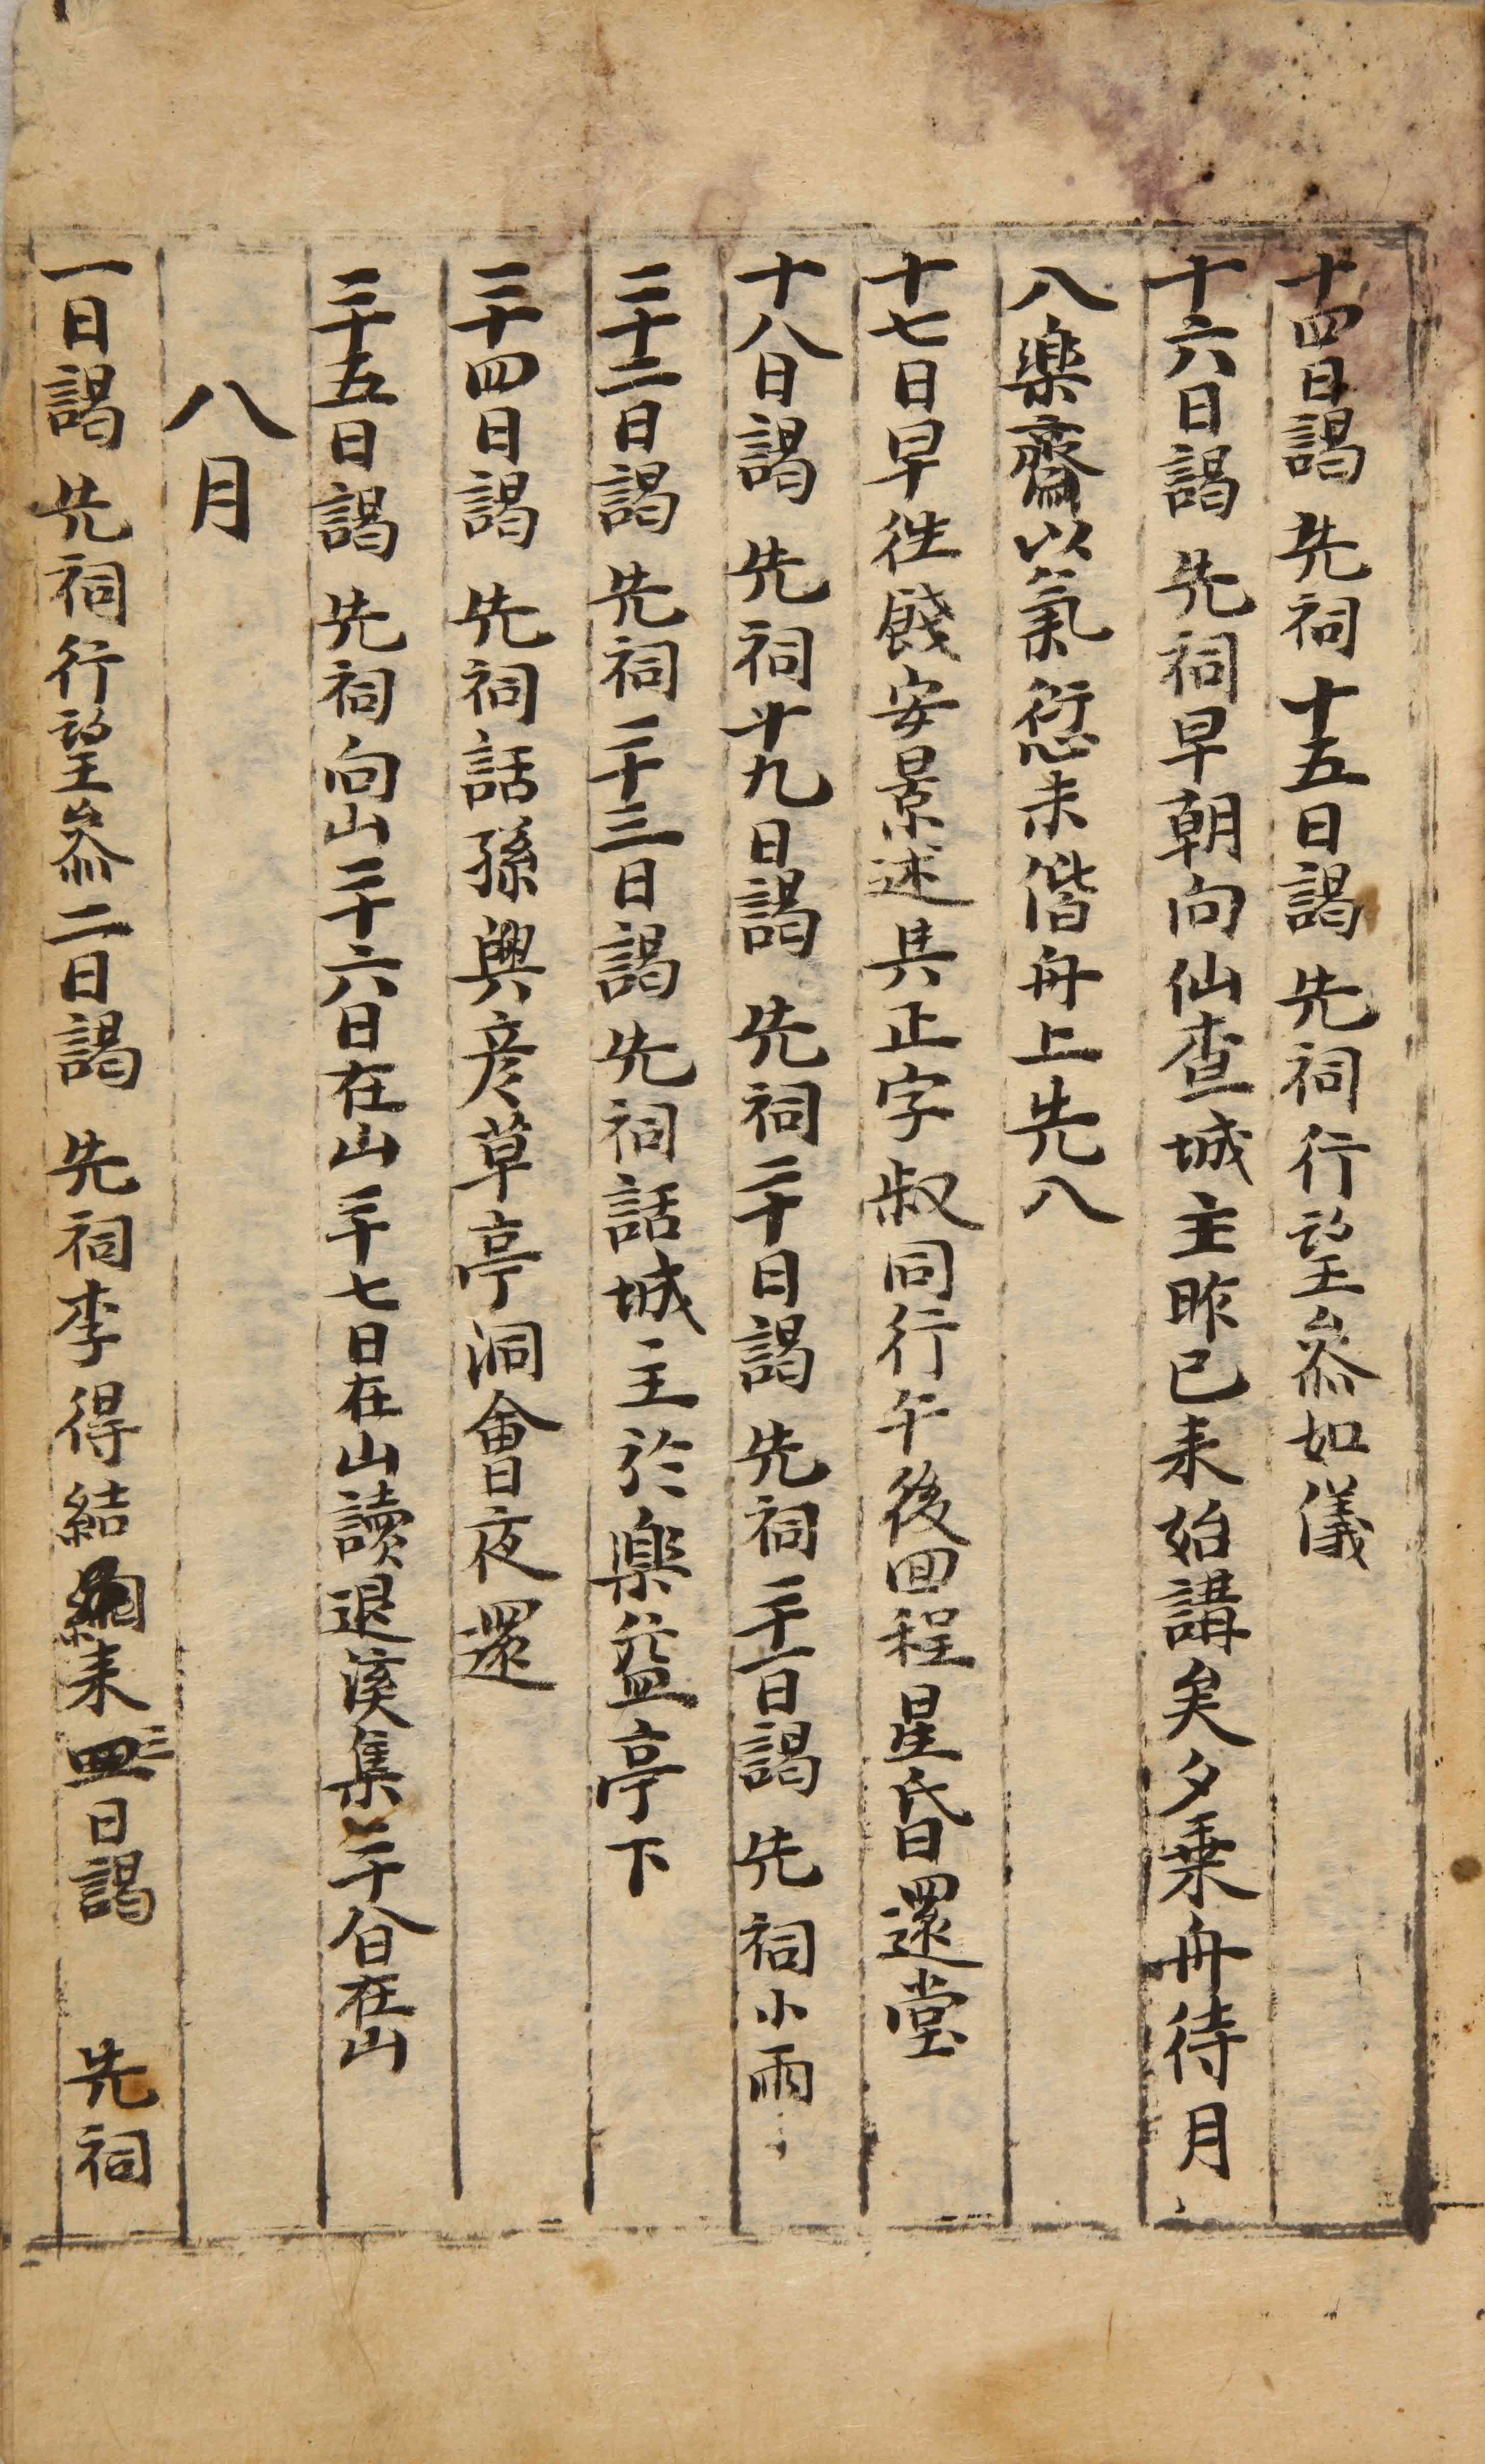 十四日謁 先祠十五日謁 先祠行望叅如儀
十六日謁 先祠早朝向仙查城主昨已来始講矣夕乗舟待月
入樂齋以氣愆未偕舟上先入
十七日早徃餞安景述具正字叔同行午後回程星昏還堂
十八日謁 先祠十九日謁 先祠二十日謁 先祠二十一日謁 先祠小雨
二十二日謁 先祠二十三日謁 先祠話城主於樂益亭下
二十四日謁 先祠話孫興彦草亭洞會夜還
二十五日謁 先祠向山二十六日在山二十七日在山讀退溪集二十八日在山
八月
一日謁 先祠行望叅二日謁 先祠李得結網来三日謁 先祠